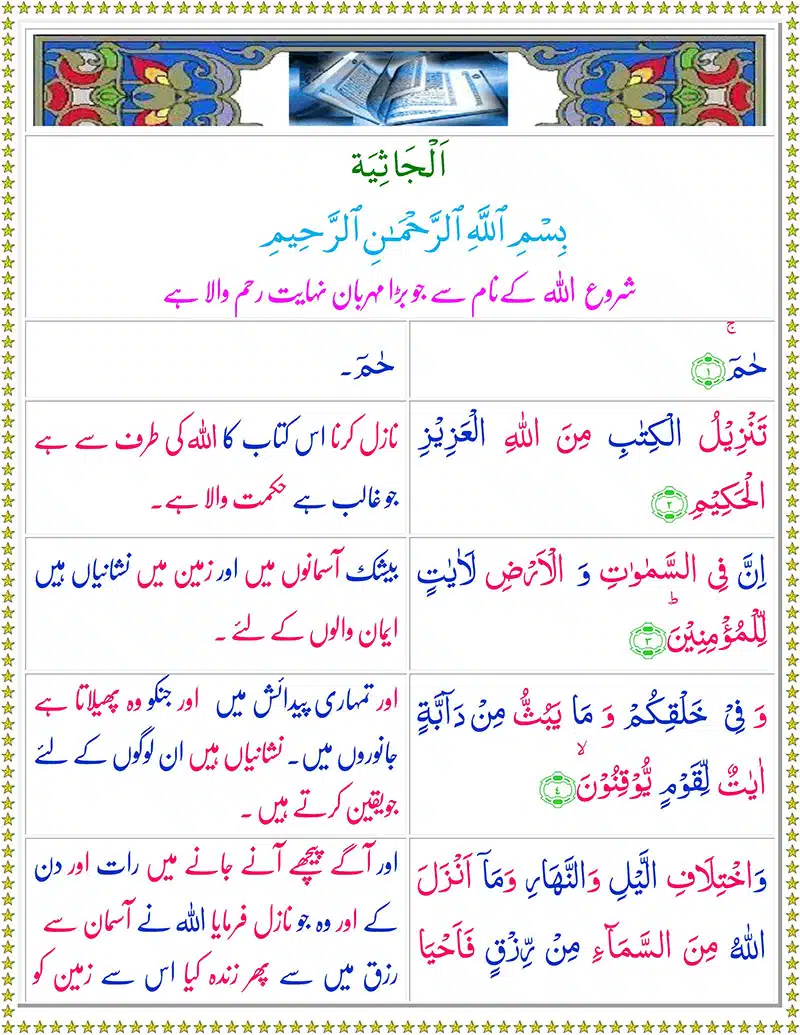 اَلْجَاثِيَة
بِسْمِ ٱللَّهِ ٱلرَّحْمَـٰنِ ٱلرَّحِيمِ
شروع اللہ کے نام سے جو بڑا مہربان نہایت رحم والا ہے
حٰمٓ ۚ‏﴿۱﴾
حٰمٓ۔
تَنْزِيْلُ الْكِتٰبِ مِنَ اللهِ الْعَزِيْزِ
الْحَكِيْمِ ﴿۲﴾
نازل کرنا اس کتاب کا اللہ کی طرف سے ہے
جو غالب ہے حکمت والا ہے۔
اِنَّ فِى السَّمٰوٰتِ وَ الْاَرْضِ لَاٰيٰتٍ
لِّلْمُؤْمِنِيْنَؕ ﴿۳﴾
بیشک آسمانوں میں اور زمین میں نشانیاں ہیں
ایمان والوں کے لئے ۔
وَ فِىْ خَلْقِكُمْ وَ مَا يَبُثُّ مِنْ دَآبَّةٍ
اٰيٰتٌ لِّقَوْمٍ يُّوْقِنُوْنَۙ ﴿٤﴾
اور تمہاری پیدائش میں اور جنکو وہ پھیلاتا ہے
جانوروں میں۔ نشانیاں ہیں ان لوگوں کے لئے
جو یقین کرتے ہیں ۔
وَاخْتِلَافِ الَّيْلِ وَالنَّهَارِ وَمَاۤ اَنْزَلَ
اللهُ مِنَ السَّمَآءِ مِنْ رِّزْقٍ فَاَحْيَا
اور آگے پیچھے آنے جانے میں رات اور دن
کے اور وہ جو نازل فرمایا اللہ نے آسمان سے
رزق میں سے پھر زندہ کیا اس سے زمین کو